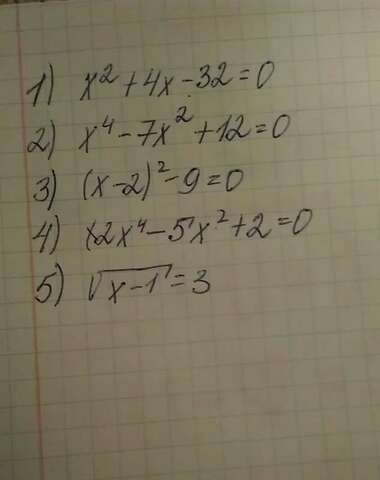 1) x² + 4x - 32 = 0
2) x⁴ - 7x² + 12 = 0
3) (x - 2)² - 9 = 0
4) 2x⁴ - 5x² + 2 = 0
5) √(x - 1) = 3